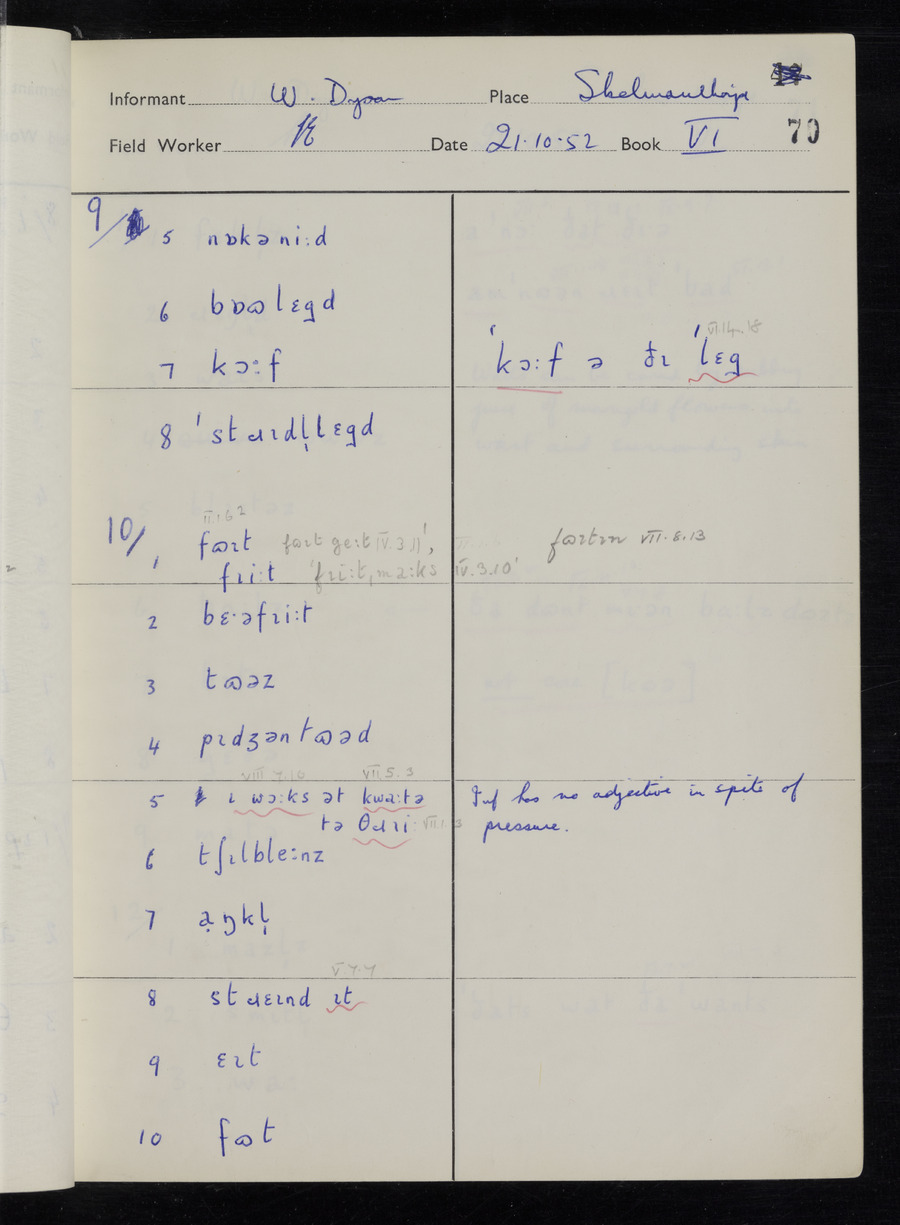 Informant W. Dyson Place Skelmanthorpe
Field Worker Date 21·10·52 Book VI 70
9/ 5 nɒkəni:d
6 bɒɷlɛgd
7 kɔ:f 'kɔ:f ə ðɪ 'lɛg VI.14.18
8 'stɹɪdl̩lɛgd
II.1.6 2
10/ 1 fɷɪt fɷɪt ge:t IV.3.11', fɷɪtɪn VII.8.13
fɹi:t 'fɹi:t,ma:ks IV.3.10'
2 bɛ·əfɹi:t
3 tɷəz
4 pɪdʒəntɷəd
VIII.7.10 VII.5.3
5 ɪ wɔ:ks ət kwa:tə Inf has no adjective in spite of
tə θɹi: VII.1.3 pressure.
6 tʃɪlble:nz
7 aŋkl̩
V.7.7
8 stɹɛɪnd ɪt
9 ɛɪt
10 fɷt